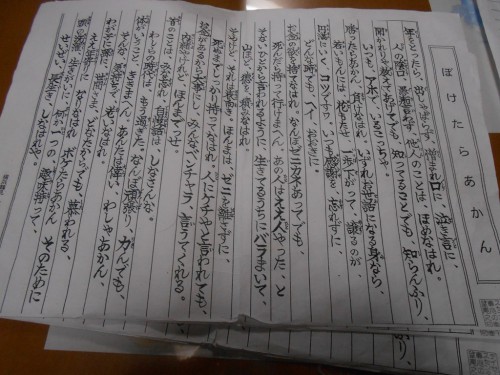 ぼけたらあかん
年をとったら、出しゃばらず、憎まれ口に、泣き言に、
人の陰口、愚痴言わず、他人のことは、ほめなはれ。
聞かれりゃ教えてあげても、知ってることでも、知らんふり、
いつも、アホで、いるこっちゃ。
勝ったらあかん、負けなはれ、いずれお世話になる身なら、
若いもんには、花もたせ、一歩下がって、譲るのが
円満に、いく、コツですワ。いつも感謝を、忘れずに、
どんな時でも、ヘイ、おおきに。
お金の欲を、捨てなはれ、なんぼゼニカネあってでも、
死んだら持って行けまへん、あの人はええ人やった、と
そないひとから言われるように、生きてるうちにバラまいて、
山ほど、徳を、積みなはれ。
そやけど、それは表向き、ほんまは、ゼニを離さずに、
死ぬまでしっかり持ってなはれ、人にケチやと言われても、
お金があるから大事にし、みんな、ベンチャラ、言うてくれる。
内緒やけれど、ほんまでっせ。
昔のことは、みな忘れ、自慢話は、しなさんな、
わしらの時代は、もう過ぎた、なんぼ頑張り、力んでも、
体がいうこと、ききまへん、あんたは偉い、わしゃあかん、
そんな気持ちで、おいなはれ。
わが子に孫に、世間さま、どなたからでも、慕われる、
ええ年寄りに なりなはれ ボケたらあかん そのために
頭の洗濯、生きがいに、何か一つの、趣味持って、
せいぜい、長生き、しなはれや。